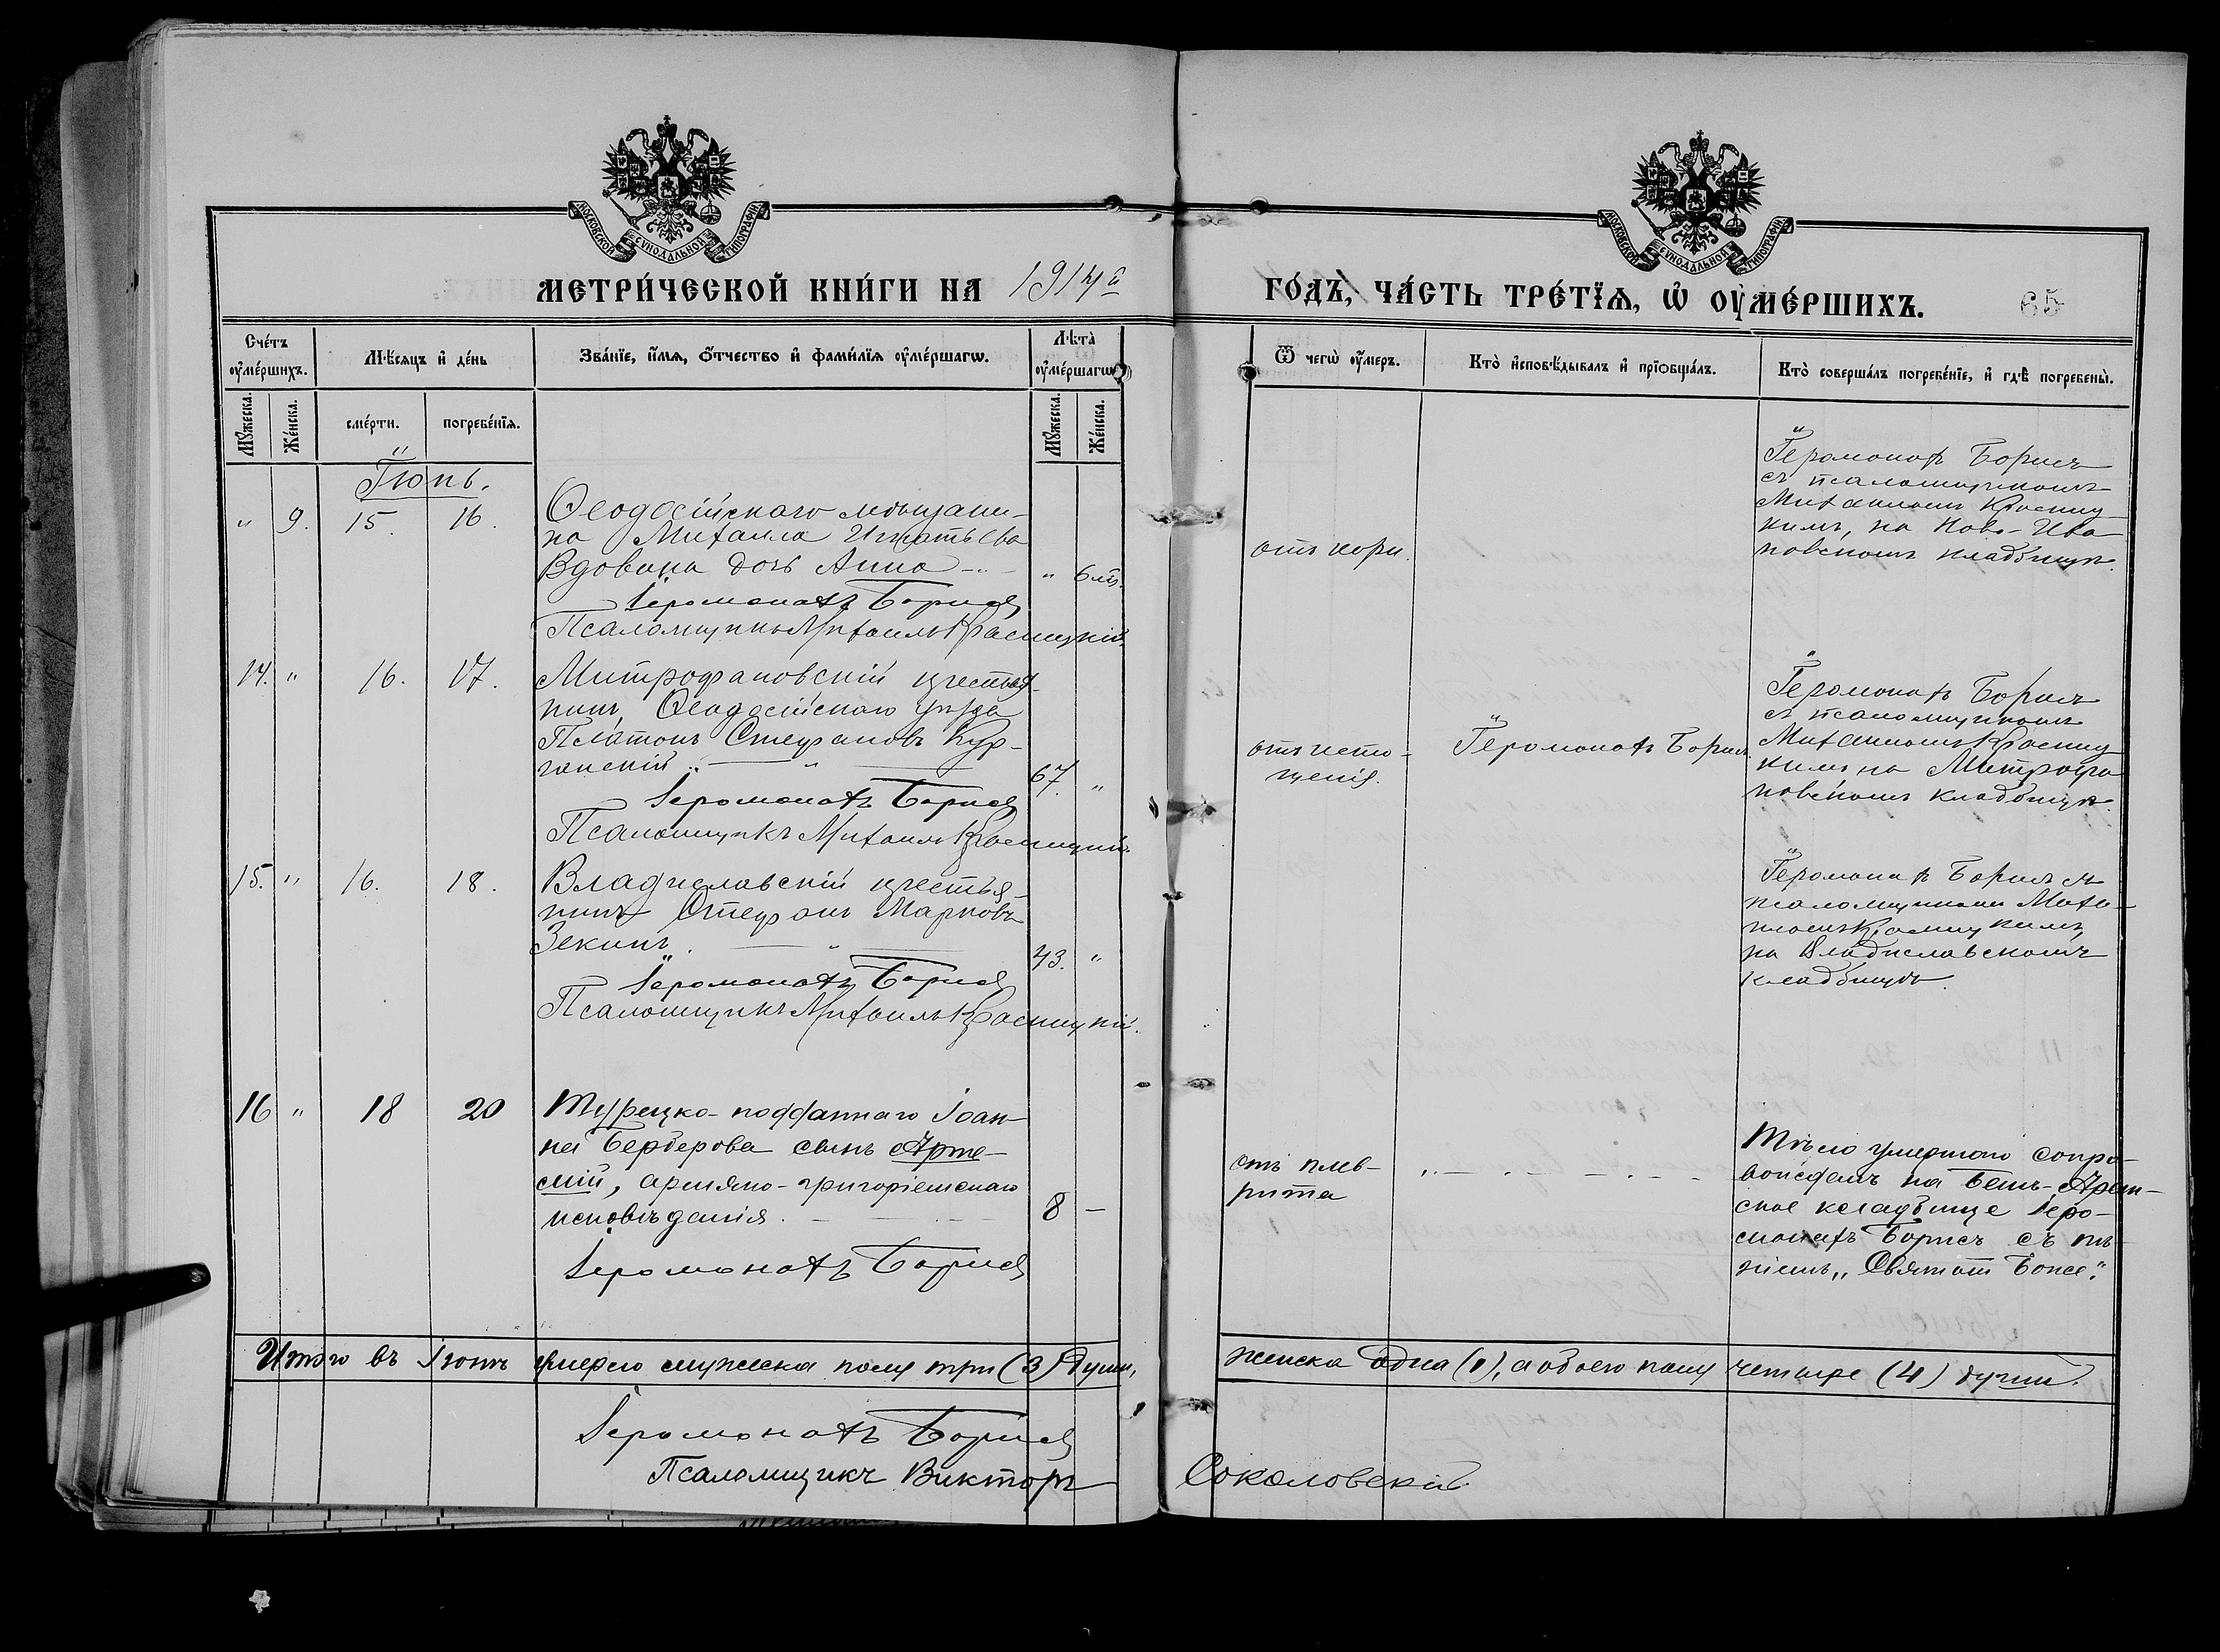 МОСКОВСКОЙ СУНОДАЛЬНОЙ ТИПОГРАФІИ
МОСКОВСКОЙ СУНОДАЛЬНОЙ ТИПОГРАФІИ
МЕТРИ́ЧЕСКОЙ КНИ́ГИ НА 1914й
ГО́ДЪ, ЧА́СТЬ ТРЕ́ТЇѦ, Ѡ҆ ОУ҆МЕ́РШИХЪ.
65
Сче́тъ оу҆ме́ршихъ.
Мѣ́сѧцъ и҆ де́нь
Зва́нїе, и҆́мѧ, ѻ҆́тчество и҆ фами́лїѧ оу҆ме́ршагѡ.
Лѣ́та оу҆ме́ршагѡ
Ѿ чегѡ̀ оу҆́меръ.
Кто̀ и҆сповѣ́дывалъ и҆ прїѻбща́лъ.
Кто̀ соверша́лъ погребе́нїе, и҆ гдѣ̀ погребены̀.
Мꙋ́жеска.
Же́нска.
сме́рти.
погребе́нїѧ.
Мꙋ́жеска.
Же́нска.
Іюнь.
" 9. 15. 16.
Ѳеодосійскаго мѣщани-
на Михаила Игнатьева
Вдовина дочь Анна " 6 м.
Іеромонахъ Борисъ
Псаломщикъ Михаилъ Красицкій.
отъ кори.
Іеромонахъ Борисъ
съ псаломщикомъ
Михаиломъ Красиц-
кимъ, на Ново-Ива-
новскомъ кладбищѣ.
14. " 16. 17.
Митрофановскій крестья-
нинъ, Ѳеодосійскаго уѣзда
Платонъ Стефановъ Кур-
ганскій 67. "
Іеромонахъ Борисъ
Псаломщикъ Михаилъ Красицкій.
отъ исто-
щенія.
Іеромонахъ Борисъ
Іеромонахъ Борисъ
съ псаломщикомъ
Михаиломъ Красиц-
кимъ на Митрофа-
новскомъ кладбищѣ.
15. " 16. 18.
Владиславскій крестья-
нинъ Стефанъ Марковъ
Зекинъ. 43. "
Іеромонахъ Борисъ
Псаломщикъ Михаилъ Красицкій.
Іеромонахъ Борисъ съ
псаломщикомъ Миха-
иломъ Красицкимъ,
на Владиславскомъ
кладбищѣ.
16 " 18 20
Турецко-подданнаго Іоан-
на Берберова сынъ Арте-
мій, армяно-григоріанскаго
исповѣданія. 8 —
Іеромонахъ Борисъ
отъ плев-
рита
Тѣло умершаго сопро-
вождалъ на Бешъ-Арам-
ское кладбище Іеро-
монахъ Борисъ съ пѣ-
ніемъ „Святый Боже".
Итого въ Іюнѣ умерло мужеска полу три (3) души,
женска одна (1), а обоего полу четыре (4) души.
Іеромонахъ Борисъ
Псаломщикъ Викторъ Соколовскій.